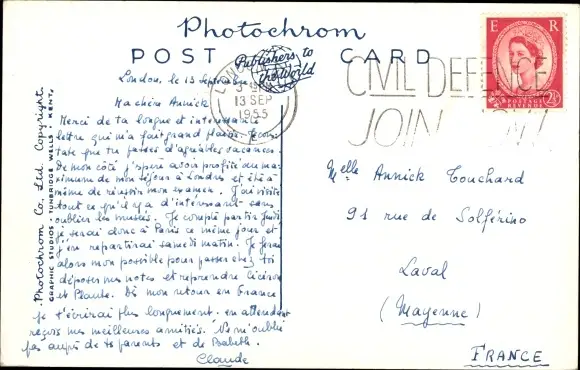 Photochrom
POST CARD
Publishers to
the World
Photochrom Co. Ltd. Copyright.
GRAPHIC STUDIOS · TUNBRIDGE WELLS · KENT.
LON
13 SEP
1955
CIVIL DEFENCE
JOIN NOW!
E R
POSTAGE
REVENUE
2½
Londres, le 13 Septembre
Ma chère Annick
Merci de ta longue et intéressante
lettre qui m'a fait grand plaisir. Je cons
tate que tu passes d'agréables vacances.
De mon côté j'espère avoir profité au ma-
ximum de mon séjour à Londres et être à
même de réussir mon examen. J'ai visité
tout ce qu'il y a d'intéressant sans
oublier les musées. Je compte partir Jeudi
je serai donc à Paris ce même jour et
j'en repartirai samedi matin. Je ferai
alors mon possible pour passer chez toi
déposer mes notes et reprendre Cicéron
et Plaute. Dès mon retour en France
je t'écrirai plus longuement. en attendant
reçois mes meilleures amitiés. Ne m'oublie
pas auprès de tes parents et de Babeth.
Claude
Melle Annick Touchard
91 rue de Solférino
Laval
(Mayenne)
FRANCE